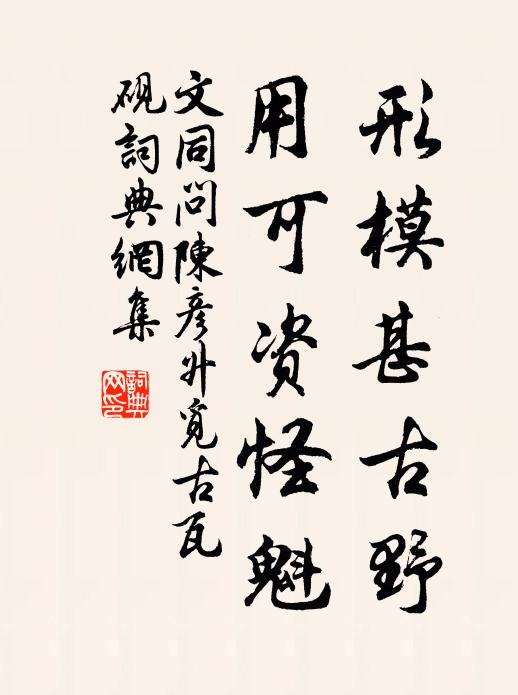 形模甚古野
用可资怪魁
文同問陳彦升覓古瓦
硯詞典網集
詞典
网印